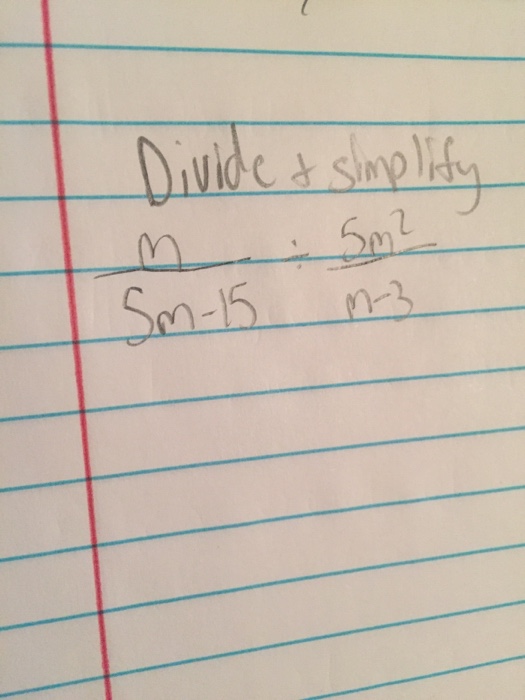 Divide + simplify
m ÷ 5m²
5m-15 m-3